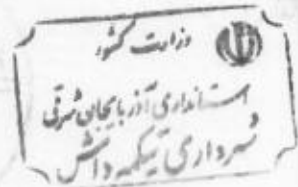 وزارت کشور
استانداری آذربایجان شرقی
و
شهرداری تیکمه داش